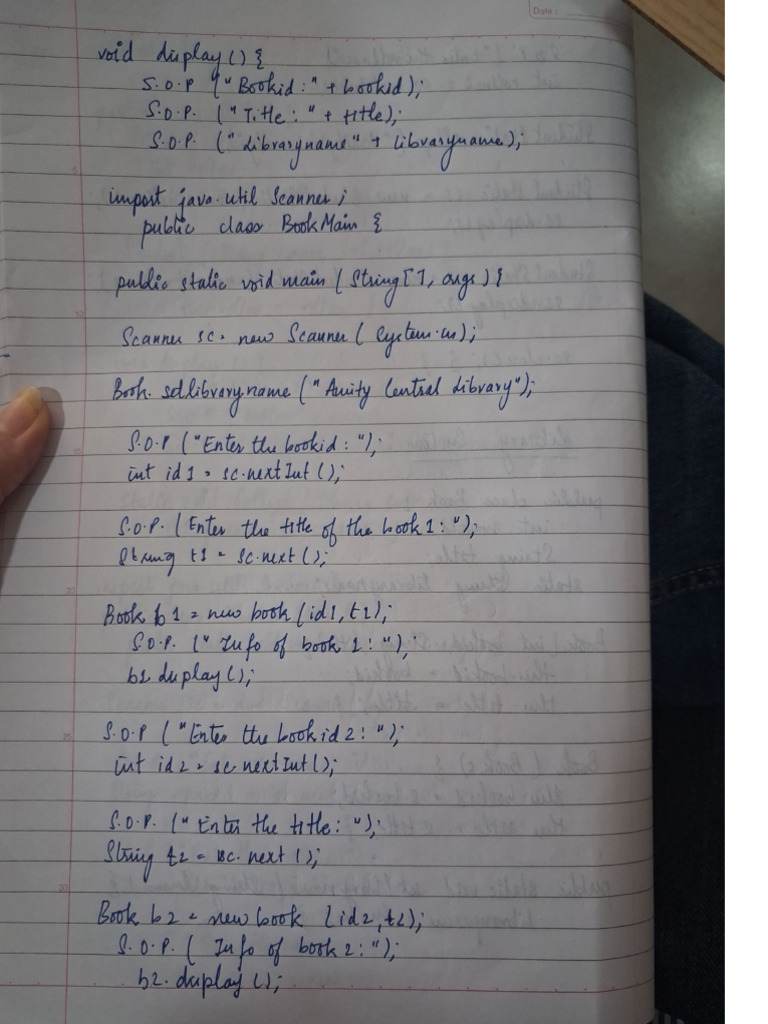 Date :
void display() {
S.O.P ("Bookid:" + bookid);
S.O.P. ("Title: " + title);
S.O.P. ("Libraryname" + libraryname);
import java.util Scanner;
public class BookMain {
public static void main (String[], args) {
Scanner sc = new Scanner (System.in);
Book. setlibraryname ("Amity Central Library");
S.O.P ("Enter the bookid : ");
int id1 = sc.nextInt ();
S.O.P. (Enter the title of the book1: ");
String t1 = sc.next ();
Book b1 = new book (id1, t1);
S.O.P. (" Info of book 1: ");
b1 display();
S.O.P ("Enter the bookid2: ");
int id2 = sc.nextInt();
S.O.P. ("Enter the title: ");
String t2 = sc. next ();
Book b2 = new book (id2, t2);
S.O.P. ( Info of book 2: ");
b2. display ();